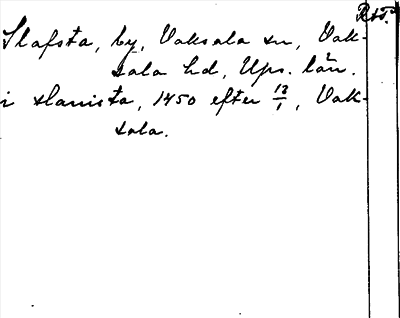 Rst.
Slafsta, by, Vaksala sn, Vak-
sala hd, Ups. län.
i slauista, 1450 efter 12/1, Vak-
sala.